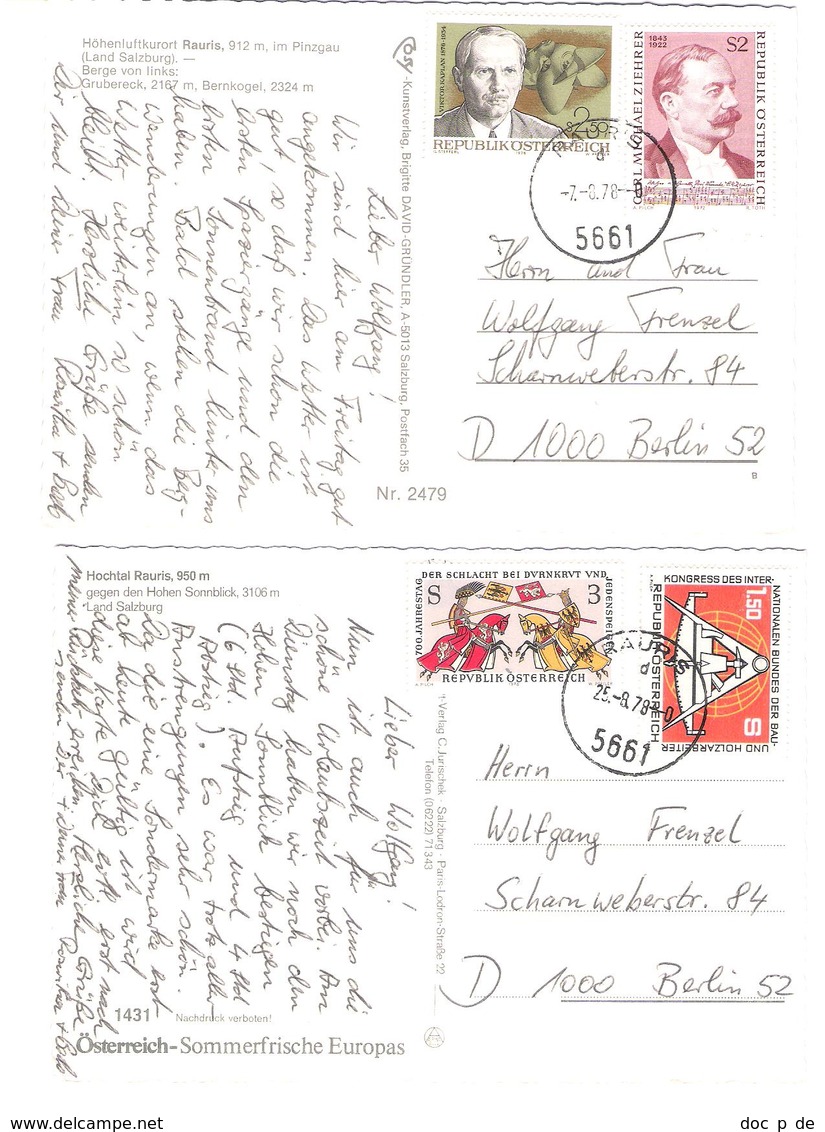 Höhenluftkurort Rauris, 912 m, im Pinzgau
(Land Salzburg). —
Berge von links:
Grubereck, 2167 m, Bernkogel, 2324 m
Lieber Wolfgang!
Wir sind hier am Freitag gut
angekommen. Das Wetter ist
gut, so daß wir schon die
ersten Spaziergänge und den
ersten Sonnenbrand hinter uns
haben. Bald stehen die Berg-
wanderungen an, wenn das
Wetter weiterhin so schön
bleibt. Herzliche Grüße senden
Dir und Deiner Frau
-Kunstverlag, Brigitte DAVID-GRÜNDLER, A-5013 Salzburg, Postfach 35
Nr. 2479
VIKTOR KAPLAN 1876-1934
S 2.50
REPUBLIK ÖSTERREICH
1843
1922
S2
CARL MICHAEL ZIEHRER
REPUBLIK ÖSTERREICH
A. PILCH 1972 R. TOTH
RAURIS
d
-7.-8.78-0
5661
Herrn und Frau
Wolfgang Frenzel
Scharnweberstr. 84
D 1000 Berlin 52
B
Hochtal Rauris, 950 m
gegen den Hohen Sonnblick, 3106 m
Land Salzburg
Lieber Wolfgang!
Nun ist auch für uns die
schöne Urlaubszeit vorbei. Am
Dienstag haben wir noch den
Hohen Sonnblick bestiegen
(6 Std. Aufstieg und 4 Std
Abstieg). Es war trotz aller
Anstrengungen sehr schön.
Da die eine Sondermarke erst
ab heute gültig ist, wird
diese Karte Dich erst nach
meiner Rückkehr erreichen. Herzliche Grüße
senden Dir + Deiner Frau
1431
Nachdruck verboten!
Österreich-Sommerfrische Europas
-Verlag C. Jurischek · Salzburg · Paris-Lodron-Straße 22
Telefon (06222) 71343
700 JAHRESTAG DER SCHLACHT BEI DVRNKRVT VND JEDENSPEIGEN
S 3
REPVBLIK ÖSTERREICH
KONGRESS DES INTER-
NATIONALEN BUNDES DER BAU-
UND HOLZARBEITER
REPUBLIK ÖSTERREICH
1.50
S
RAURIS
d
25.-8.78-0
5661
Herrn
Wolfgang Frenzel
Scharnweberstr. 84
D 1000 Berlin 52
www.delcampe.net
doc p de